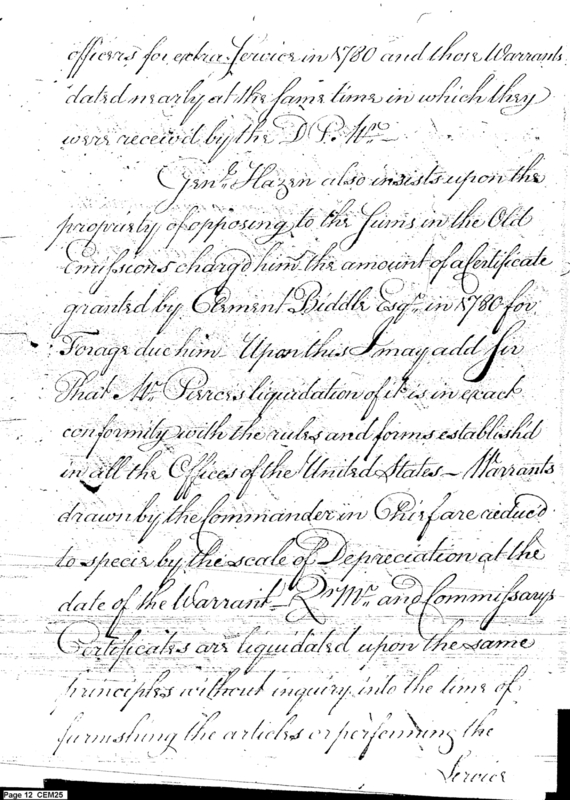 officers for extra Service in 1780 and those Warrants
dated nearly at the same time in which they
were receivd by the D P. Mr.—
Genl. Hazen also insists upon the
propriety of opposing to the Sums in the Old
Emissions chargd him the amount of a Certificate
granted by Clement Biddle Esqr. in 1780 for
Forage due him Upon this I may add Sir
That Mr. Pierces liquidation of it is in exact
conformity with the rules and forms establishd
in all the Offices of the United States — Warrants
drawn by the Commander in Chief are reduc'd
to specie by the scale of Depreciation at the
date of the Warrant — Qr Mr. and Commissarys
Certificates are liquidated upon the same
principles without inquiry into the time of
furnishing the articles or performing the
Service
Page 12 CEM25